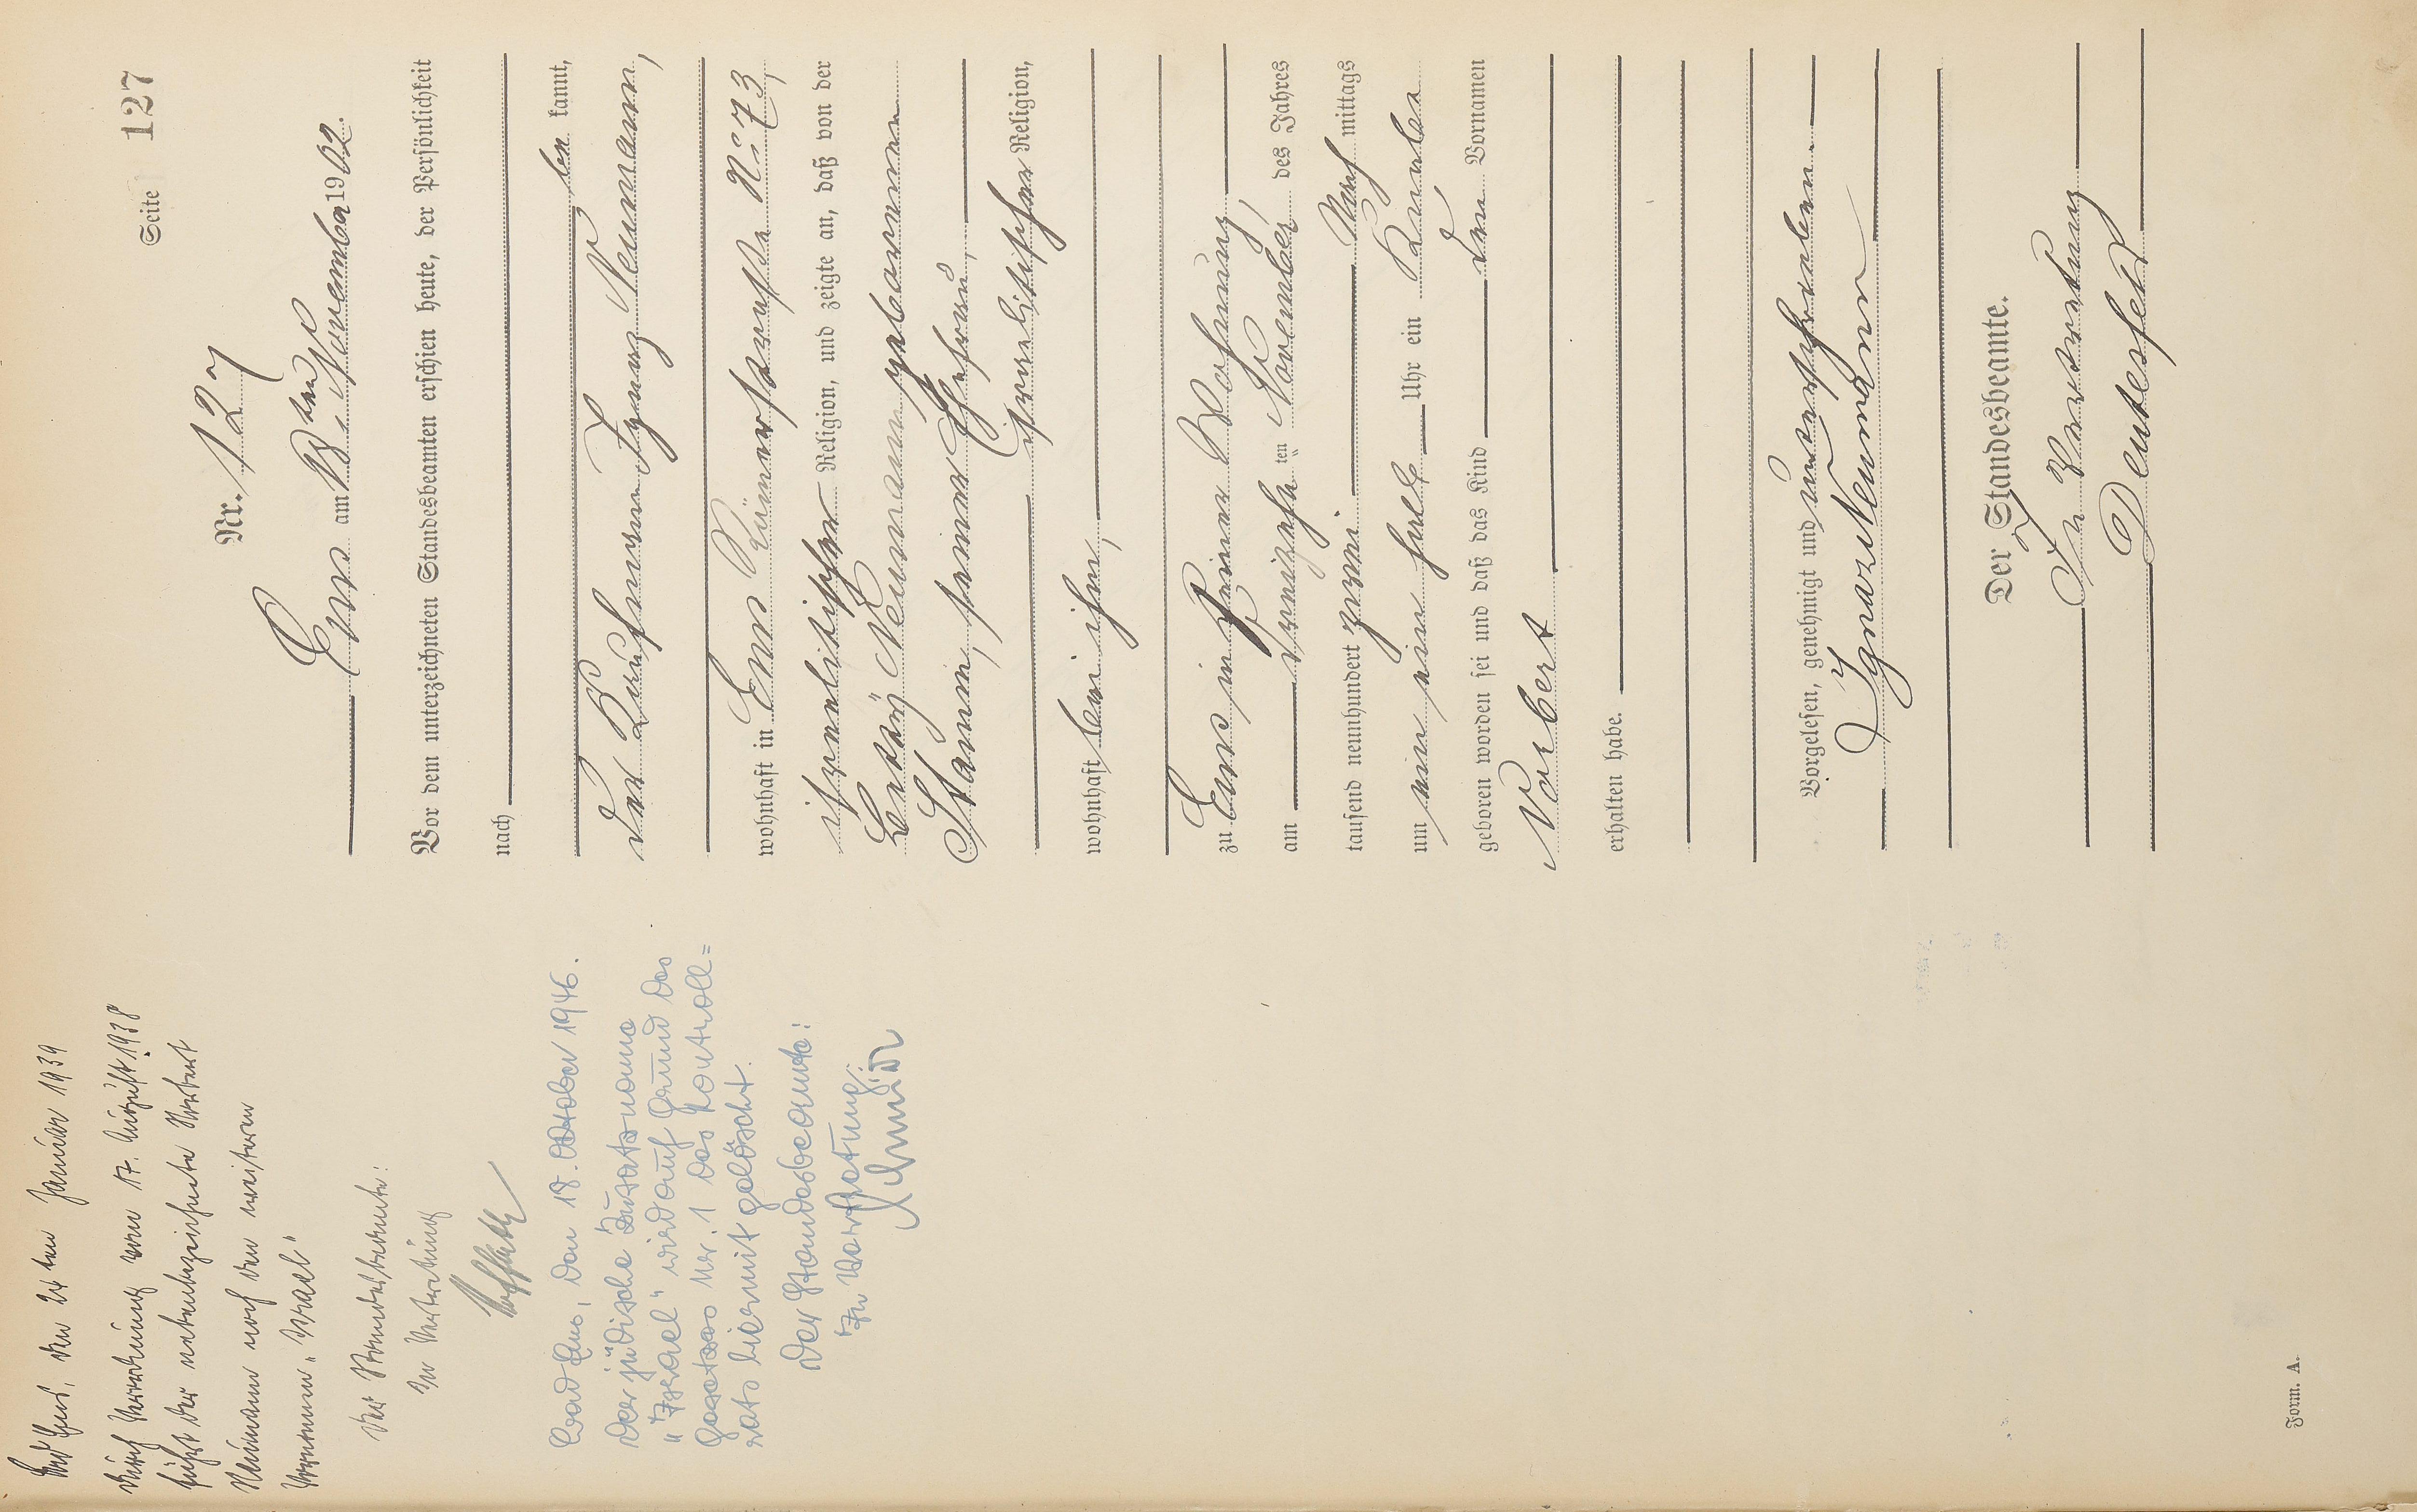 Seite 127
Nr. 127
Ems am 18ten November 1902.
Vor dem unterzeichneten Standesbeamten erschien heute, der Persönlichkeit
nach
be kannt,
der Kaufmann Ignaz Neumann,
wohnhaft in Ems Römerstraße No 73,
israelitischer Religion, und zeigte an, daß von der
Neumann geborenen
Stamm, seiner Ehefrau,
israelitischer Religion,
wohnhaft bei ihm,
zu Ems in seiner Wohnung,
am dreizehn ten November des Jahres
tausend neunhundert zwei Nach mittags
um ein halb Uhr ein Knabe
geboren worden sei und daß das Kind den Vornamen
Norbert
erhalten habe.
Vorgelesen, genehmigt und unterschrieben.
Ignaz Neumann
Der Standesbeamte.
In Vertretung
Deutesfeld
Bad Ems, den 24ten Januar 1939
Durch Verordnung vom 17. August 1938
führt der nebenbezeichnete Norbert
Neumann noch den weiteren
Vornamen „Israel"
Der Standesbeamte:
In Vertretung
Bad Ems, den 18. Oktober 1946.
Der jüdische Zusatzname
"Israel" wird auf Grund des
Gesetzes Nr. 1 des Kontroll=
rats hiermit gelöscht.
Der Standesbeamte:
In Vertretung:
Form. A.